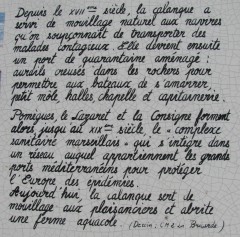 Depuis le XVIIème siècle, la calanque a
servi de mouillage naturel aux navires
qu'on soupçonnait de transporter des
malades contagieux. Elle devient ensuite
un port de quarantaine aménagé :
creusés dans les rochers pour
permettre aux bateaux de s'amarrer,
petit môle, halles, chapelle et capitainerie.
Pomègues, le Lazaret et la Consigne forment
alors, jusqu'au XIXème siècle, le "complexe
sanitaire marseillais" qui s'intègre dans
un réseau auquel appartiennent les grands
ports méditerranéens pour protéger
l'Europe des épidémies.
Aujourd'hui, la calanque sert de
mouillage aux plaisanciers et abrite
une ferme aquacole. (Dessin :